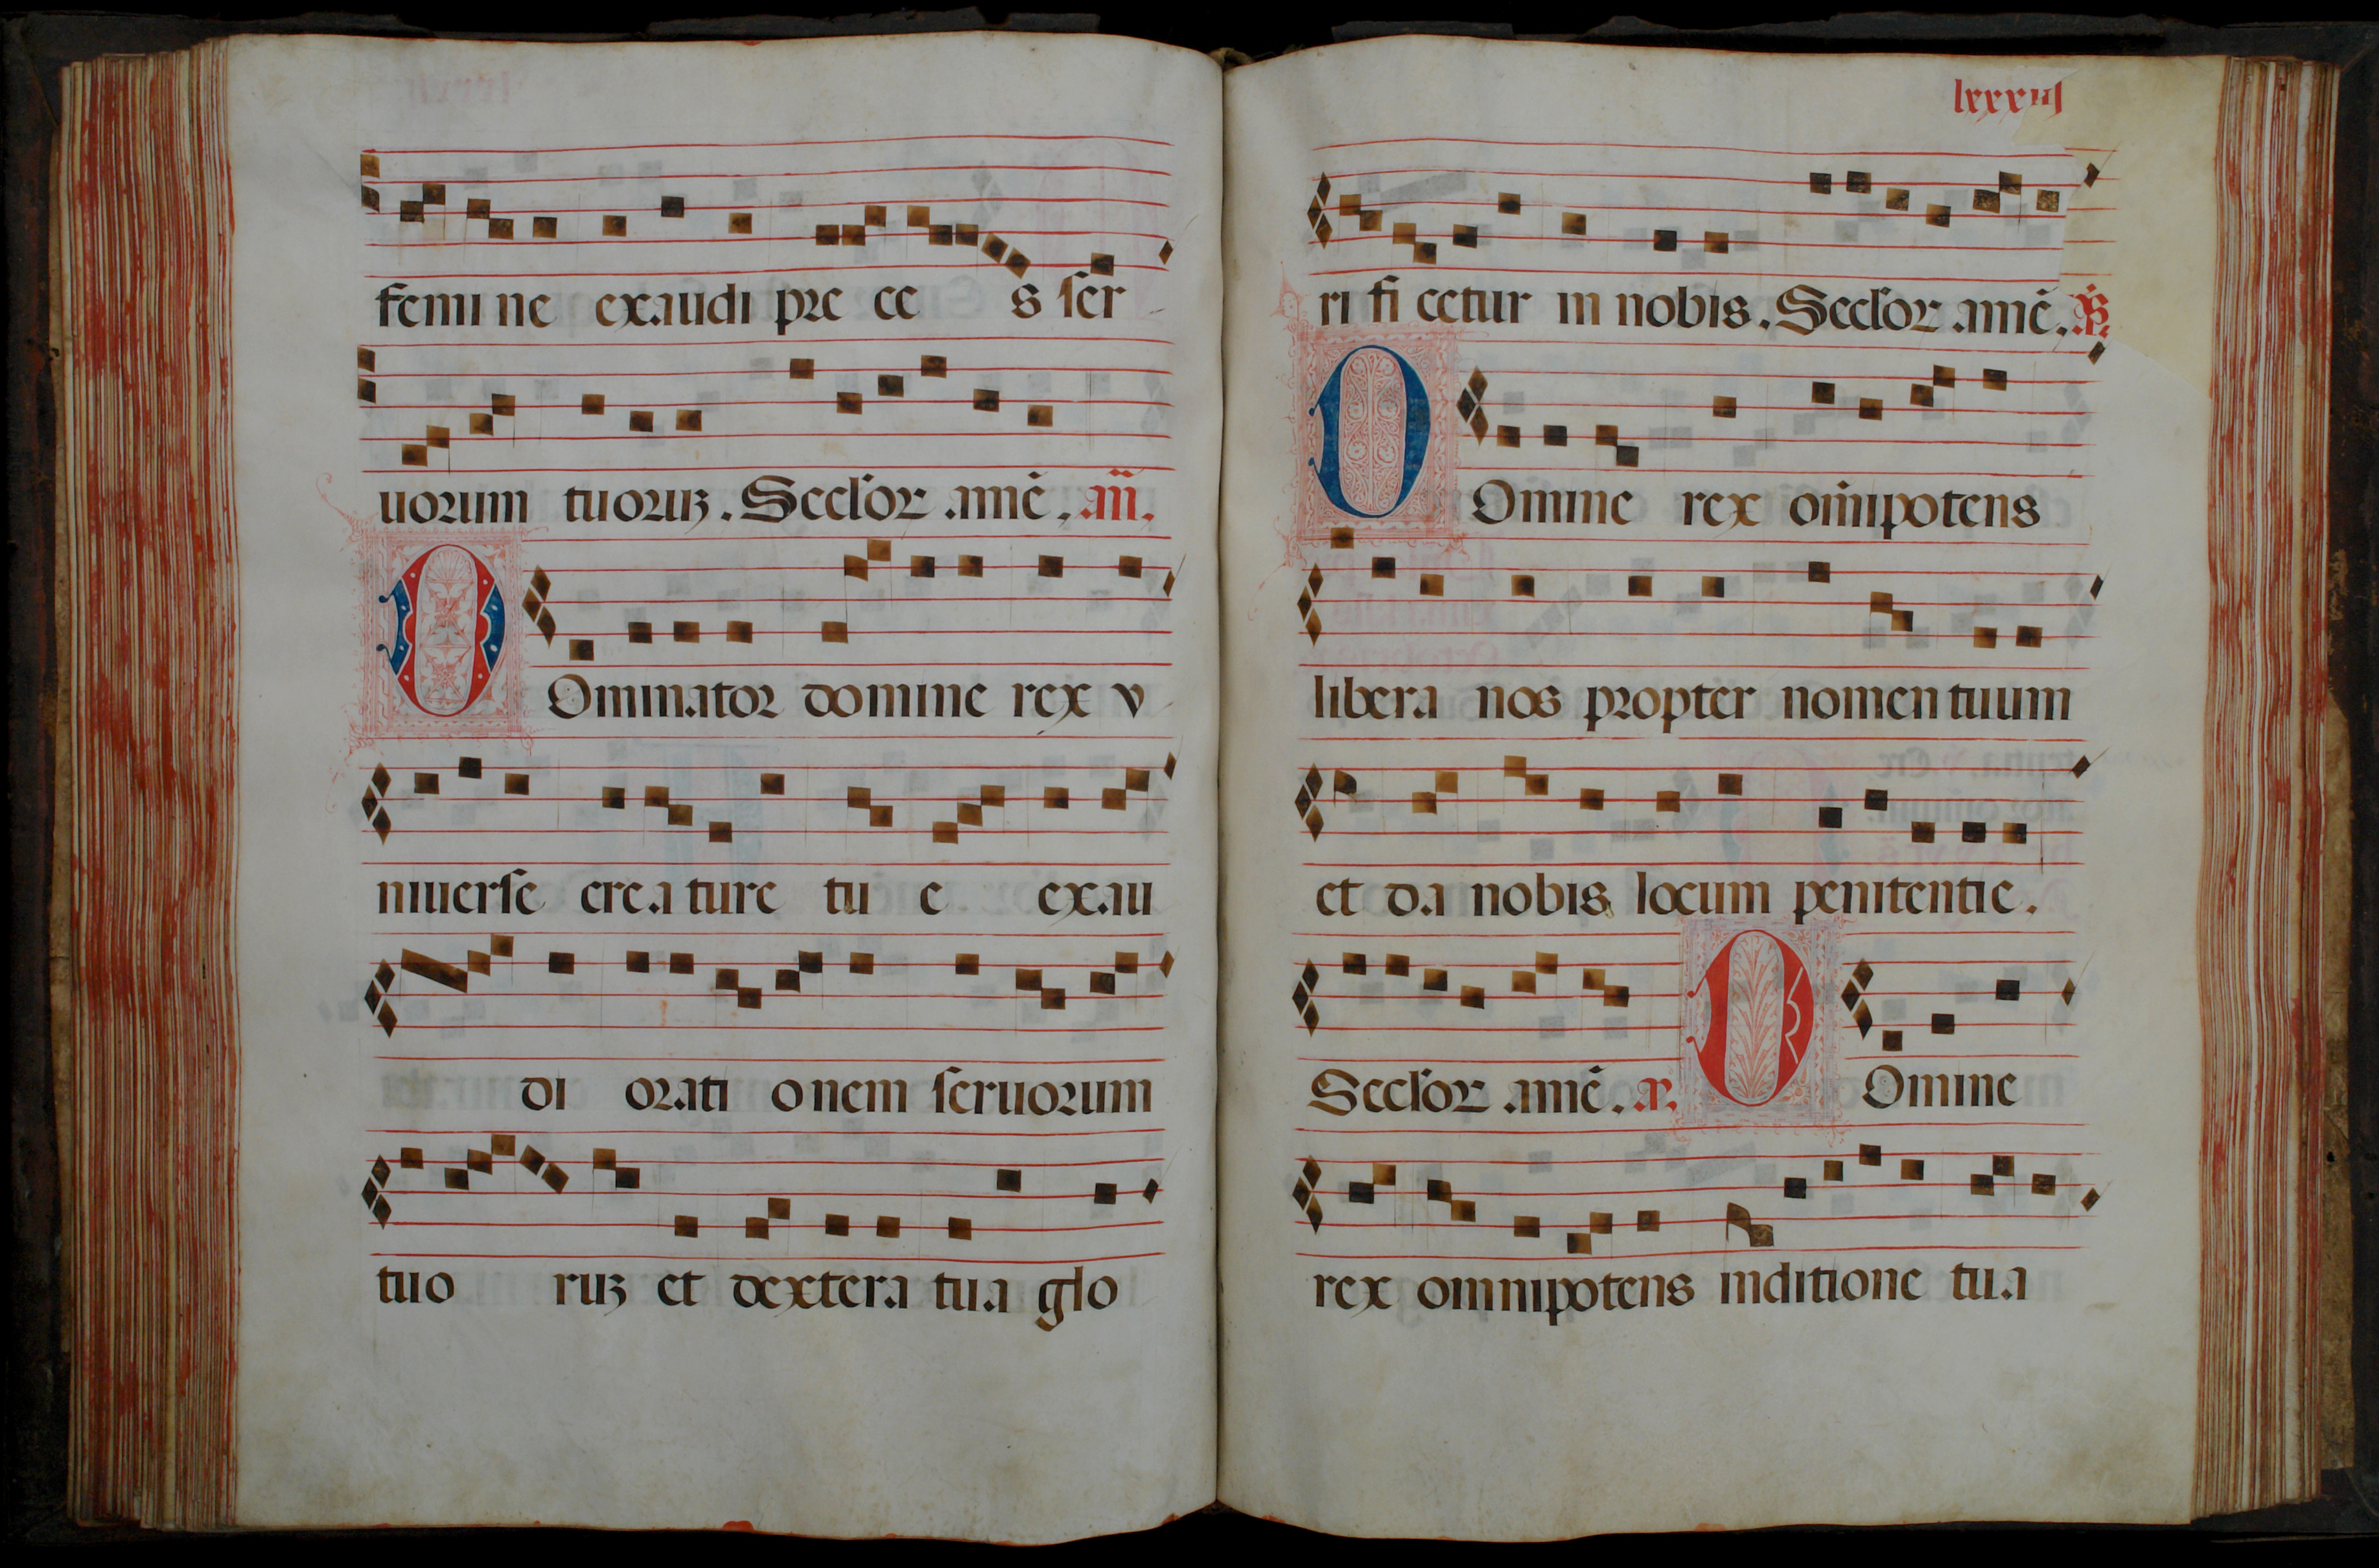 femine exaudi preces ser-
uorum tuoruꝫ. Seclor amē. añ.
DOminator domine rex v-
niuerse creature tue exau
di orationem seruorum
tuoruꝫ et dextera tua glo
lxxxiij
rificetur in nobis. Seclor amē. p̄s.
DOmine rex om̄ipotens
libera nos propter nomen tuum
et da nobis locum penitentie.
Seclor amē. ꝶ. DOmine
rex omnipotens inditione tua